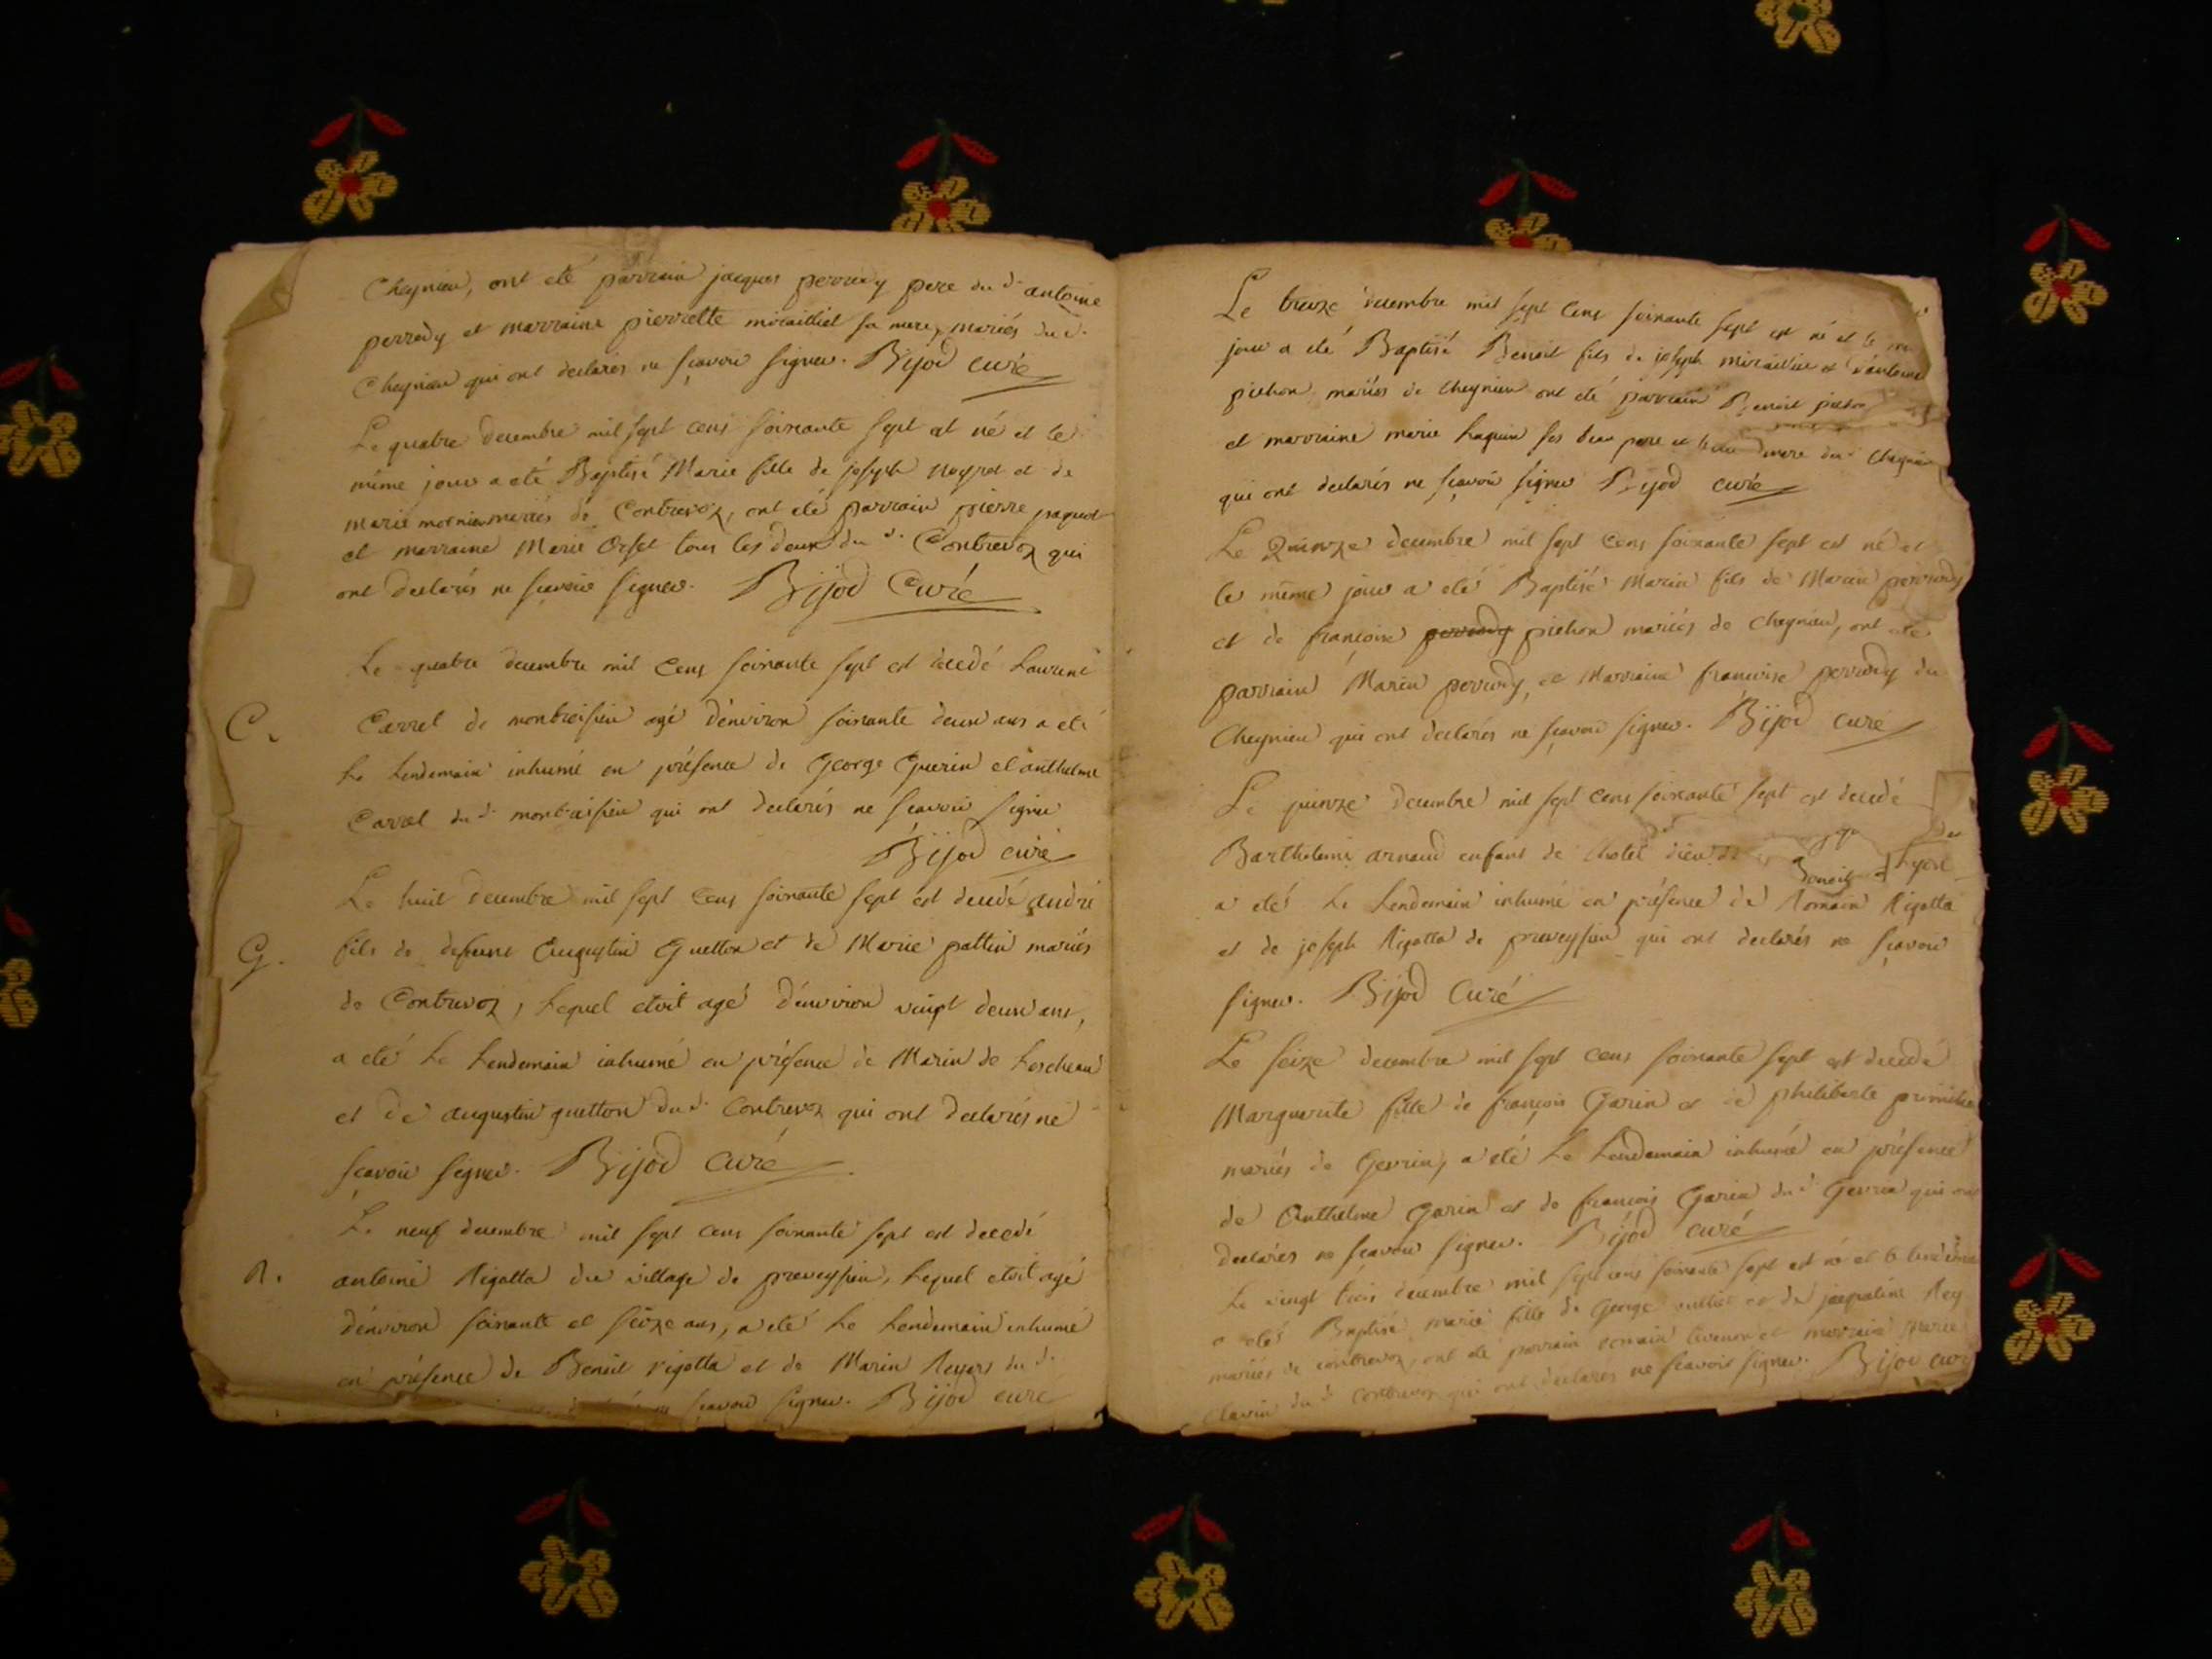 Cheynieu, ont eté parrain jacques perrody pere du d. antoine
perrody et marraine pierrette miraillet sa mere, mariés du d.
Cheynieu qui ont declarés ne sçavoir signer. Bijod curé
Le quatre decembre mil sept cens soixante sept est né et le
même jour a eté Baptisé Marie fille de joseph neyret et de
marie mornieu mariés de Contrevoz, ont eté parrain pierre paquet
et marraine Marie Orset tous les deux du d. Contrevoz qui
ont declarés ne sçavoir signer. Bijod Curé
Le quatre decembre mil cens soixante sept est decedé Laurent
C. Carrel de montbreisieu agé d'environ soixante deux ans a eté
le Lendemain inhumé en présence de George Guerin et anthelme
Carrel du d. qui ont declarés ne sçavoir signer
Bijod curé
Le huit decembre mil sept cens soixante sept est decedé andré
G. fils de defunt Augustin Guetton et de Marie pattin mariés
de Contrevoz, Lequel etoit agé d'environ vingt deux ans,
a eté Le Lendemain inhumé en présence de Marin de Loscheau
et de augustin guetton du d. Contrevoz qui ont declarés ne
sçavoir signer. Bijod Curé
Le neuf decembre mil sept cens soixante sept est decedé
R. antoine Rigotta du village de preveysieu, Lequel etoit agé
d'environ soixante et seize ans, a eté Le Lendemain inhumé
en présence de Benoit rigotta et de Marin Reyer du d.
sçavoir signer. Bijod curé
Le treize decembre mil sept cens soixante sept est né et le
jour a eté Baptisé Benoit fils de joseph miraillet et d'antoine
pichon mariés de Cheynieu ont eté parrain Benoit pichon
et marraine marie huguin ses beau pere et mere du d. Cheynieu
qui ont declarés ne sçavoir signer Bijod curé
Le Quinze decembre mil sept cens soixante sept est né et
le même jour a eté Baptisé Marin fils de Marin perrody
et de françoise perrody pichon mariés de Cheynieu, ont eté
parrain Marin perrody, et Marraine françoise perrody du
Cheynieu qui ont declarés ne sçavoir signer. Bijod curé
Le quinze decembre mil sept cens soixante sept est decedé
Barthelemi arnaud enfant de l'hotel dieu de Lyon
Benoit
a eté Le Lendemain inhumé en présence de Romain Rigotta
et de joseph Rigotta de preveysieu qui ont declarés ne sçavoir
signer. Bijod Curé
Le seize decembre mil sept cens soixante sept est decedé
Marguerite fille de françois Garin et de philiberte
mariés de Gevrin, a eté Le Lendemain inhumé en présence
de Anthelme Garin et de françois Garin du d. Gevrin qui ont
declarés ne sçavoir signer. Bijod curé
Le vingt trois decembre mil sept cens soixante sept est né et le lendemain
a eté Baptisé marie fille de George vulliet et de jaqueline Rey
mariés de contrevoz, ont eté parrain romain et marraine marie
du d. Contrevoz qui ont declarés ne sçavoir signer. Bijod curé